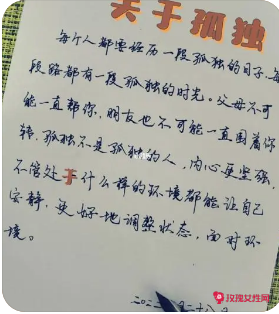 关于孤独
每个人都要经历一段孤独的日子,每
段路都有一段孤独的时光。父母不可
能一直帮你,朋友也不可能一直围着你
转,孤独不是孤独的人,内心更坚强,
不管处于什么样的环境都能让自己
安静,更好地调整状态,面对环
境。
玫瑰女性网